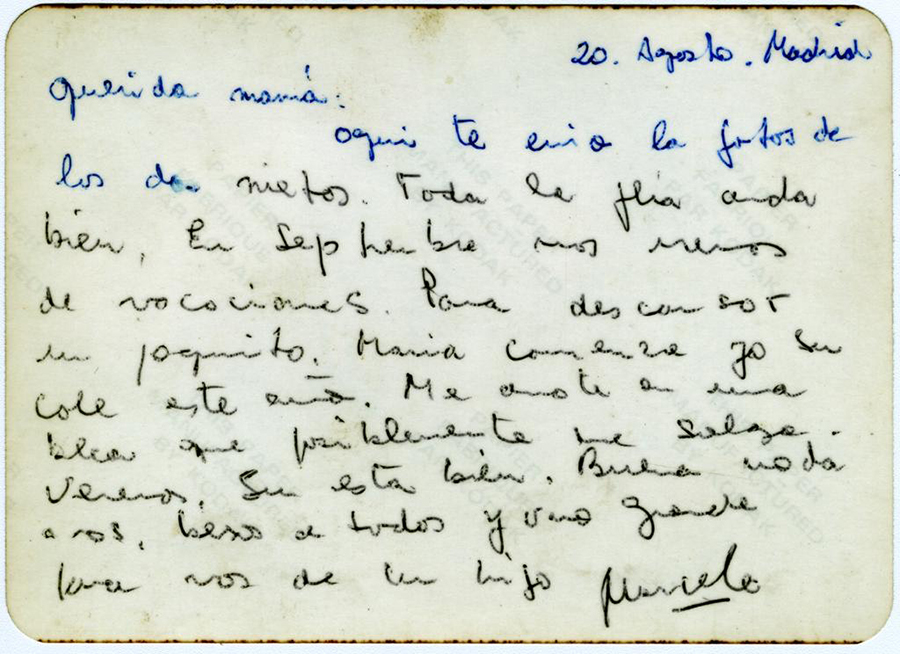 20. Agosto. Madrid
Querida mamá:
aqui te envio la fotos de
los dos nietos. Toda la flia anda
bien, En Septiembre nos iremos
de vacaciones. Para descansar
un poquito. Maria comienza ya su
cole este año. Me anote en una
que posiblemente me salga.
Veremos. Su esta bien. Bueno nada
a vos, beso a todos y uno grande
para vos de tu hijo Marcelo
THIS PAPER
MANUFACTURED
BY KODAK
PAPIER
FABRIQUE
PAR KODAK